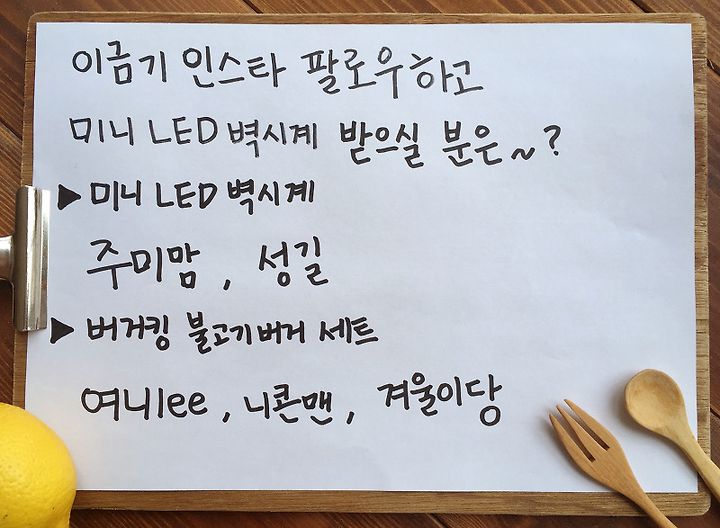 이금기 인스타 팔로우하고
미니 LED 벽시계 받으실 분은~?
▶ 미니 LED 벽시계
주미맘, 성길
▶ 버거킹 불고기버거 세트
여니lee, 니콘맨, 겨울이당